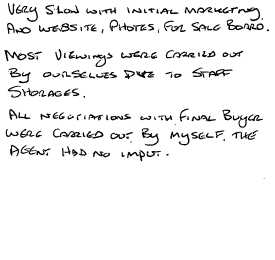 VERY SLOW WITH INITIAL MARKETING
AND WEBSITE, PHOTES, FOR SALE BOARD.
MOST VIEWINGS WERE CARRIED OUT
BY OURSELVES DUE TO STAFF
SHORAGES.
ALL NEGOTIATIONS WITH FINAL BUYER
WERE CARRIED OUT BY MYSELF. THE
AGENT HAD NO IMPUT.